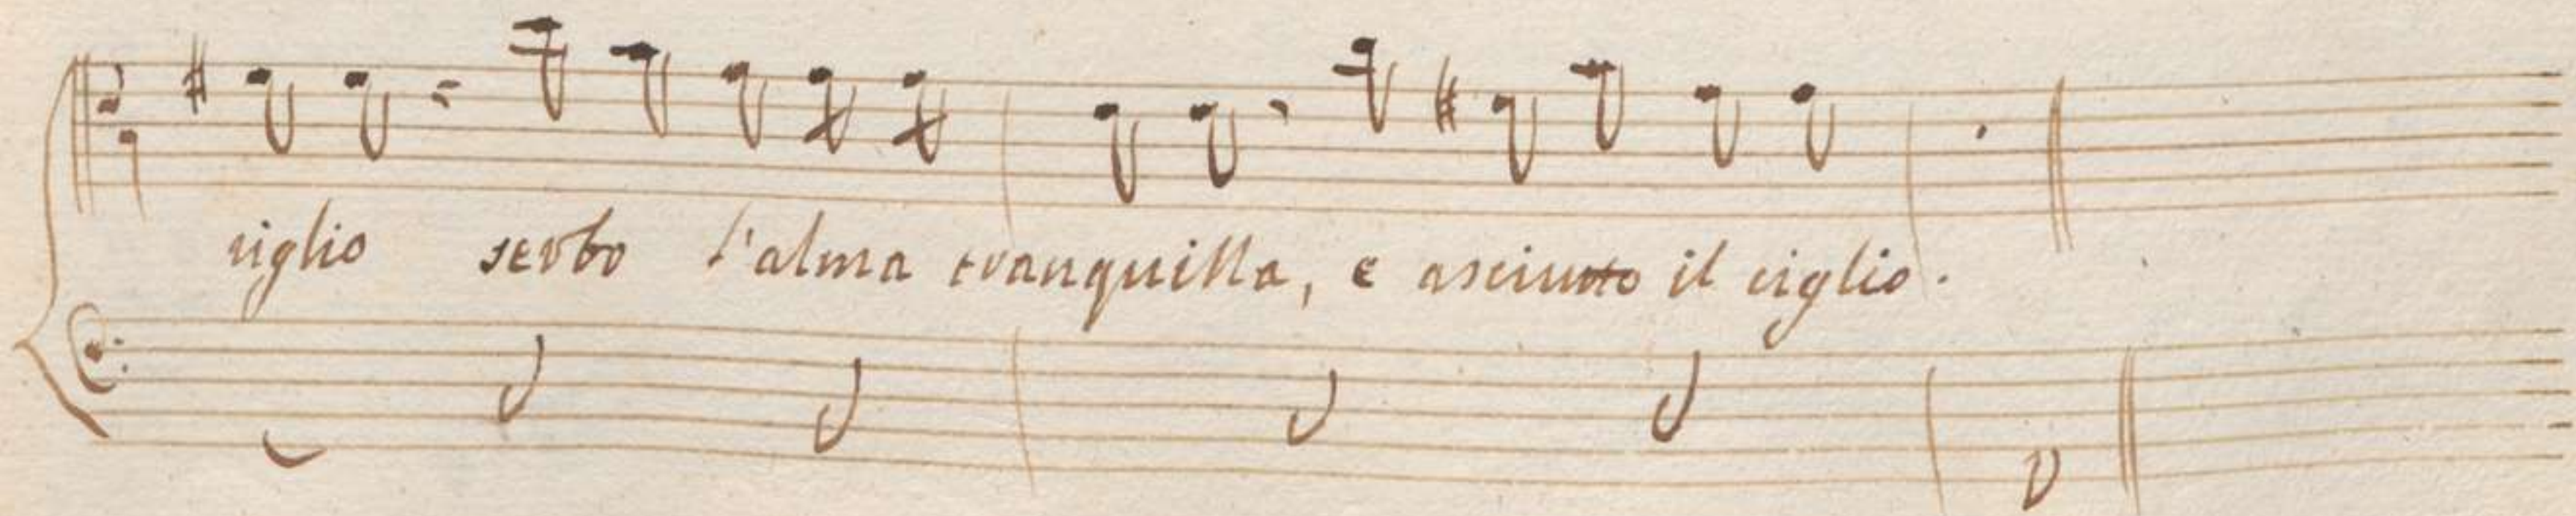 riglio serbo l'alma tranquilla, e asciutto il ciglio.